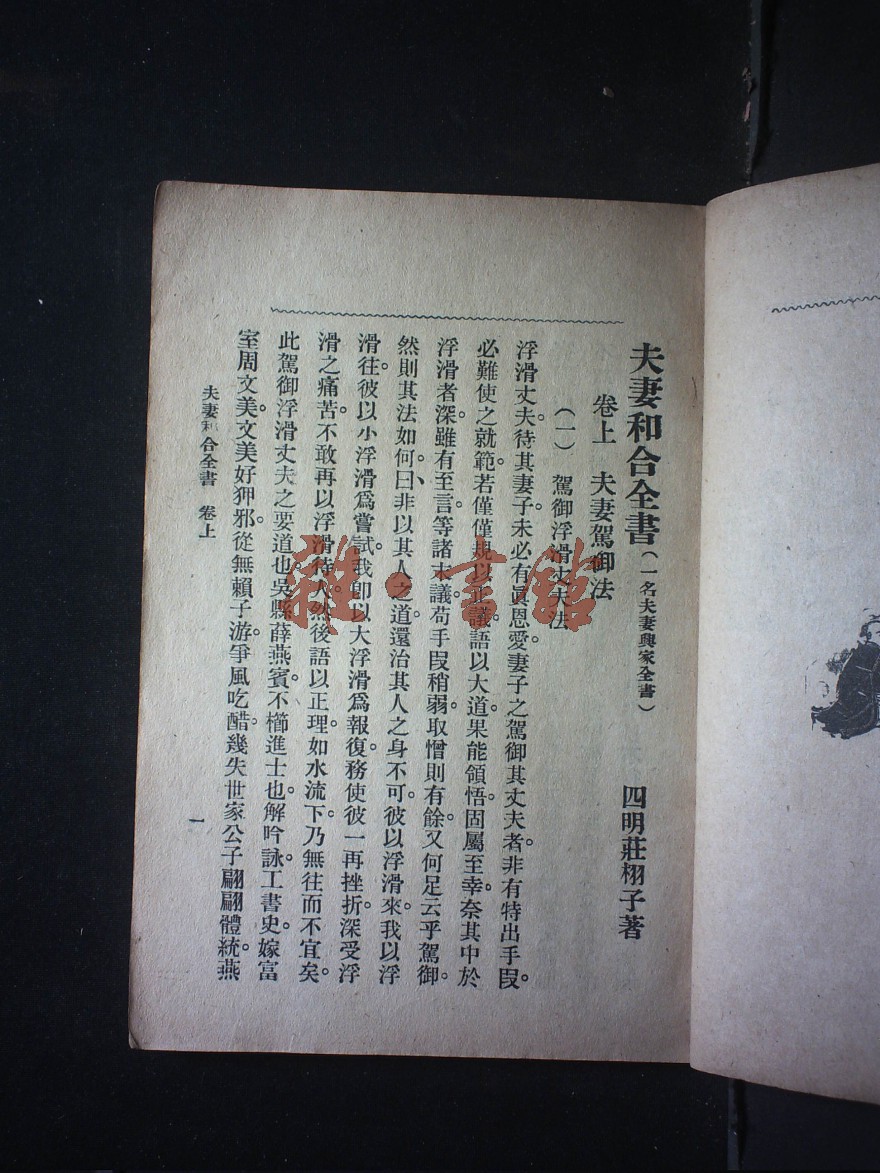 夫妻和合全書(一名夫妻興家全書)
四明莊栩子著
卷上 夫妻駕御法
(一) 駕御浮滑丈夫法
浮滑丈夫。待其妻子。未必有眞恩愛。妻子之駕御其丈夫者。非有特出手段。
必難使之就範。若僅僅規以正議。語以大道。果能領悟。固屬至幸。奈其中於
浮滑者深。雖有至言。等諸末議。苟手段稍弱。取憎則有餘。又何足云乎駕御。
然則其法如何。曰、非以其人之道。還治其人之身不可。彼以浮滑來。我以浮
滑往。彼以小浮滑爲嘗試。我卽以大浮滑爲報復。務使彼一再挫折。深受浮
滑之痛苦。不敢再以浮滑待人。然後語以正理。如水流下。乃無往而不宜矣。
此駕御浮滑丈夫之要道也。吳縣薛燕賓。不櫛進士也。解吟詠。工書史。嫁富
室周文美。文美好狎邪。從無賴子游。爭風吃醋。幾失世家公子翩翩體統。燕
夫妻和合全書 卷上
一
雜·書館